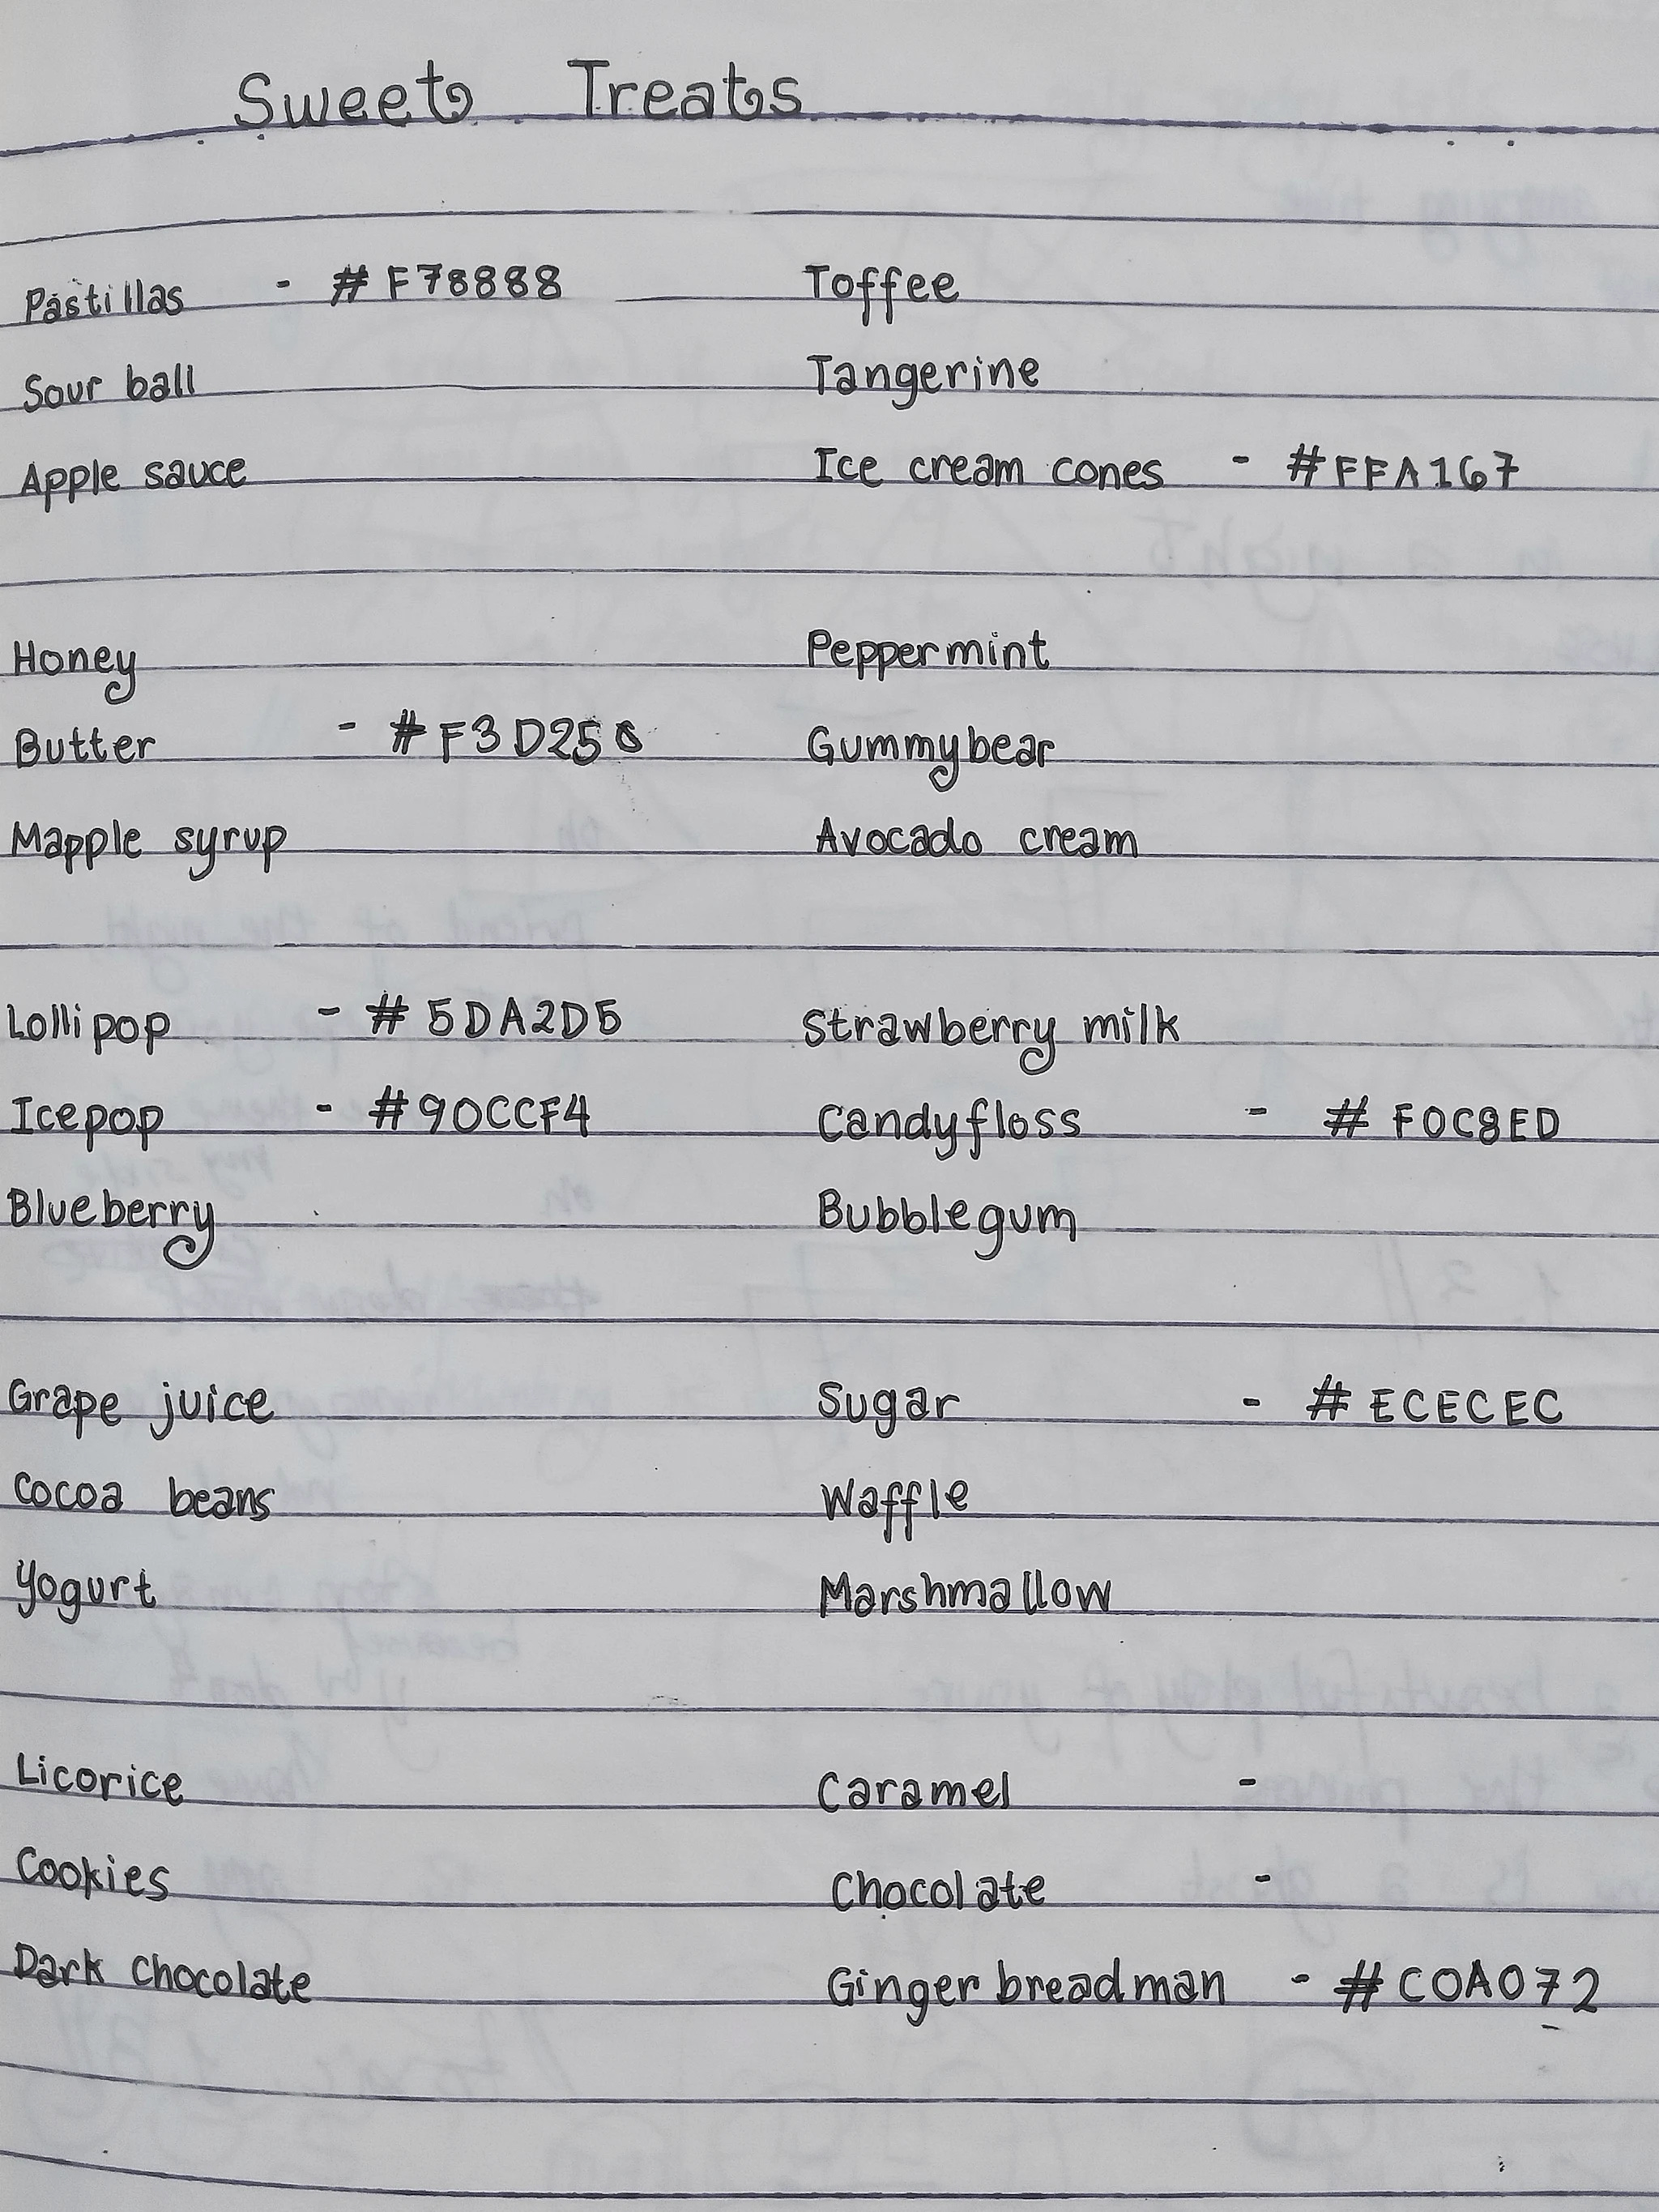 Sweet Treats
Pastillas - #F78888
Sour ball
Apple sauce
Toffee
Tangerine
Ice cream cones - #FFA167
Honey
Butter - #F3D250
Mapple syrup
Peppermint
Gummybear
Avocado cream
Lollipop - #5DA2D5
Icepop - #90CCF4
Blueberry
Strawberry milk
Candyfloss - #F0C8ED
Bubblegum
Grape juice
Cocoa beans
Yogurt
Sugar - #ECECEC
Waffle
Marshmallow
Licorice
Cookies
Dark chocolate
Caramel -
Chocolate -
Ginger breadman - #C0A072